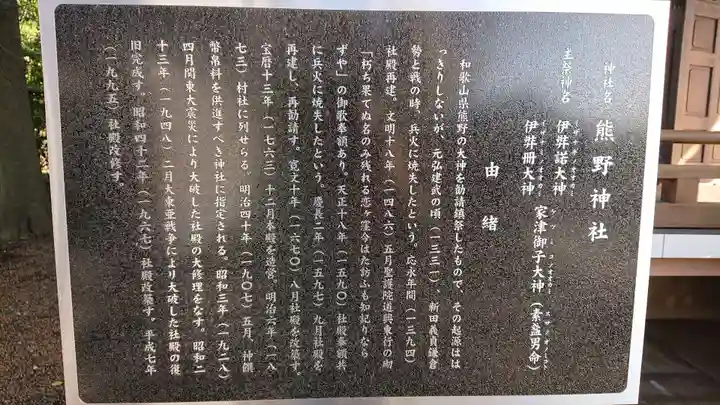 神社名 熊野神社
主祭神名 伊弉諾大神
伊弉冊大神
家津御子大神(素盞男命)
由緒
和歌山県熊野の大神を勧請鎮祭したもので、その起源ははっ
きりしないが、元弘建武の頃(一三三一)、新田義貞鎌倉
勢と戦の時、兵火に焼失したという。応永年間(一三九四)
社殿再建。文明十八年(一四八六)五月聖護院道興東行の砌
「朽ち果てぬ名のみ残れる恋ヶ窪今はた訪ふも知記りなら
ずや」の御歌奉額あり。天正十八年(一五九〇)社殿奉額共
に兵火に焼失したという。慶長二年(一五九七)九月社殿を
再建し、再勧請す。寛文十年(一六七〇)八月社殿を改築す。
宝暦十三年(一七六三)十二月本殿を造営。明治六年(一八
七三)村社に列せらる。明治四十年(一九〇七)五月、神饌
幣帛料を供進すべき神社に指定される。昭和三年(一九二八)
四月関東大震災により大破した社殿の大修理をなす。昭和二
十三年(一九四八)二月大東亜戦争により大破した社殿の復
旧完成す。昭和四十二年(一九六七)社殿改築す。平成七年
(一九九五)社殿改修す。